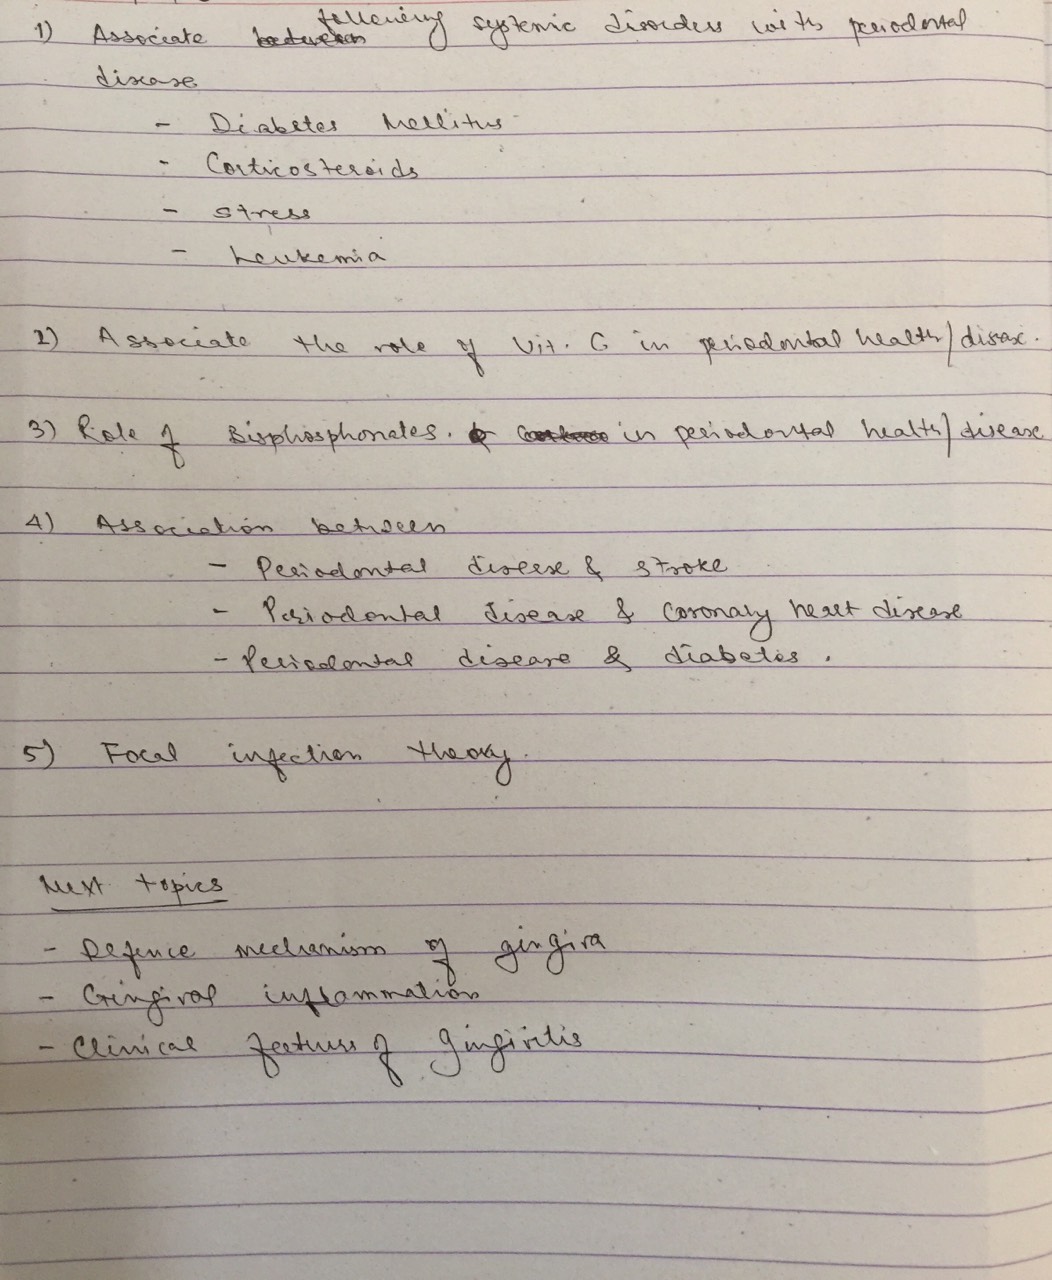 1) Associate following systemic disorders with periodontal
disease
- Diabetes Mellitus
- Corticosteroids
- stress
- Leukemia
2) Associate the role of Vit. C in periodontal health/disease.
3) Role of Bisphosphonates. in periodontal health/disease
4) Association between
- Periodontal disease & stroke
- Periodontal disease & Coronary heart disease
- Periodontal disease & diabetes.
5) Focal infection theory.
Next topics
- Defence mechanism of gingiva
- Gingival inflammation
- Clinical features of Gingivitis